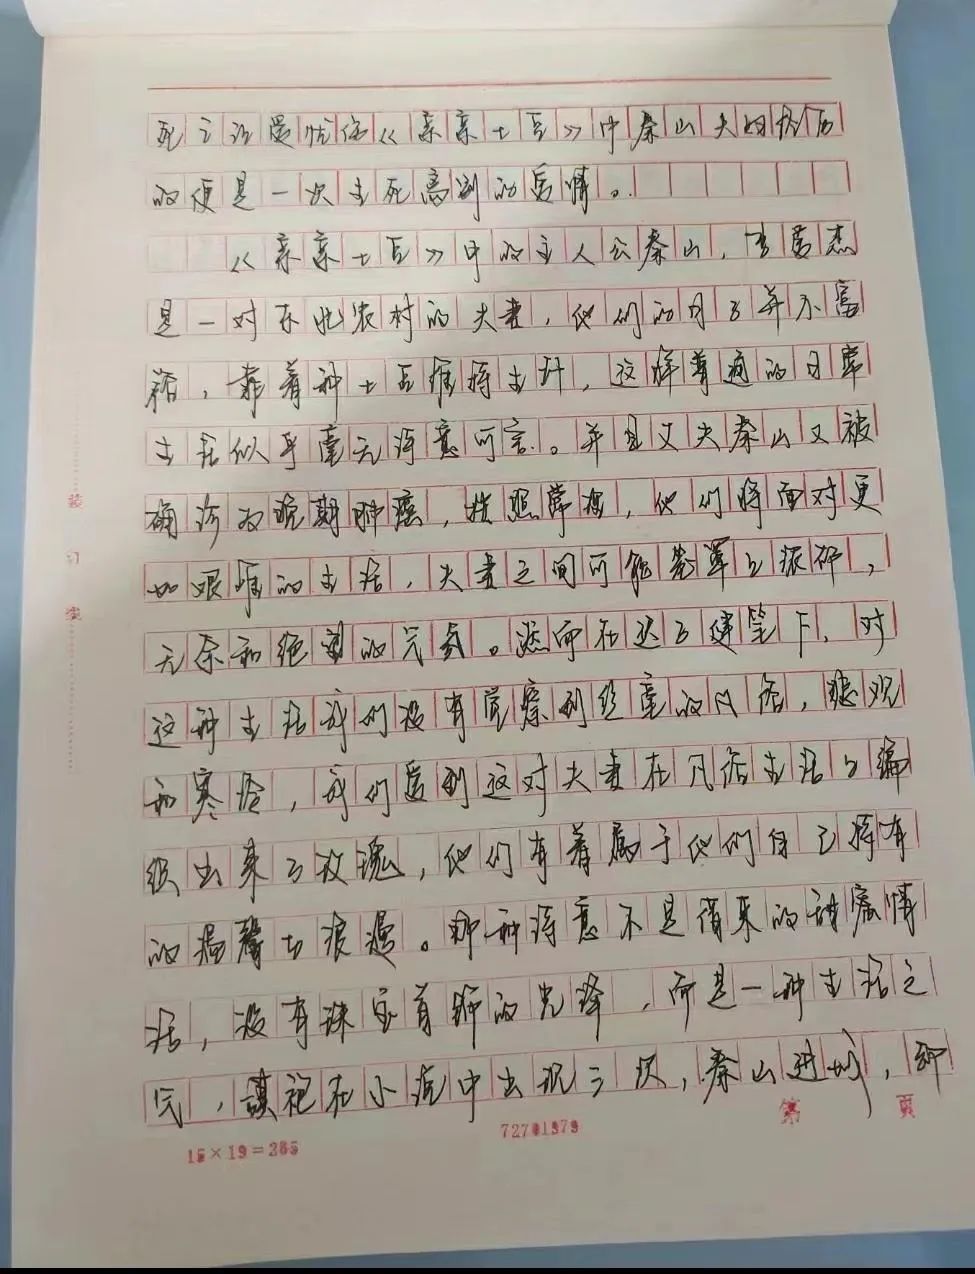 死之说是忧伤《亲亲土豆》中秦山夫妇经历
的便是一次生死离别的爱情。
《亲亲土豆》中的主人公秦山，李爱杰
是一对东北农村的夫妻，他们的日子并不富
裕，靠着种土豆维持生计，这样普通的日常
生活似乎毫无诗意可言。并且丈夫秦山又被
确诊为晚期肺癌，按照常规，他们将面对更
加艰难的生活，夫妻之间可能笼罩上
无奈和绝望的气氛。然而在迟子建笔下，对
这种生活我们没有觉察到丝毫的风俗，悲观
和寒冷，我们看到这对夫妻在凡俗生活上编
织出来了玫瑰，他们有着属于他们自己特有
的温馨与浪漫。那种诗意不是借来的甜腻情
话，没有珠宝首饰的光泽，而是一种生活之
气，旗袍在小说中出现三次，秦山进城，卸
装
订
线
15×19=285
72701979
第 页